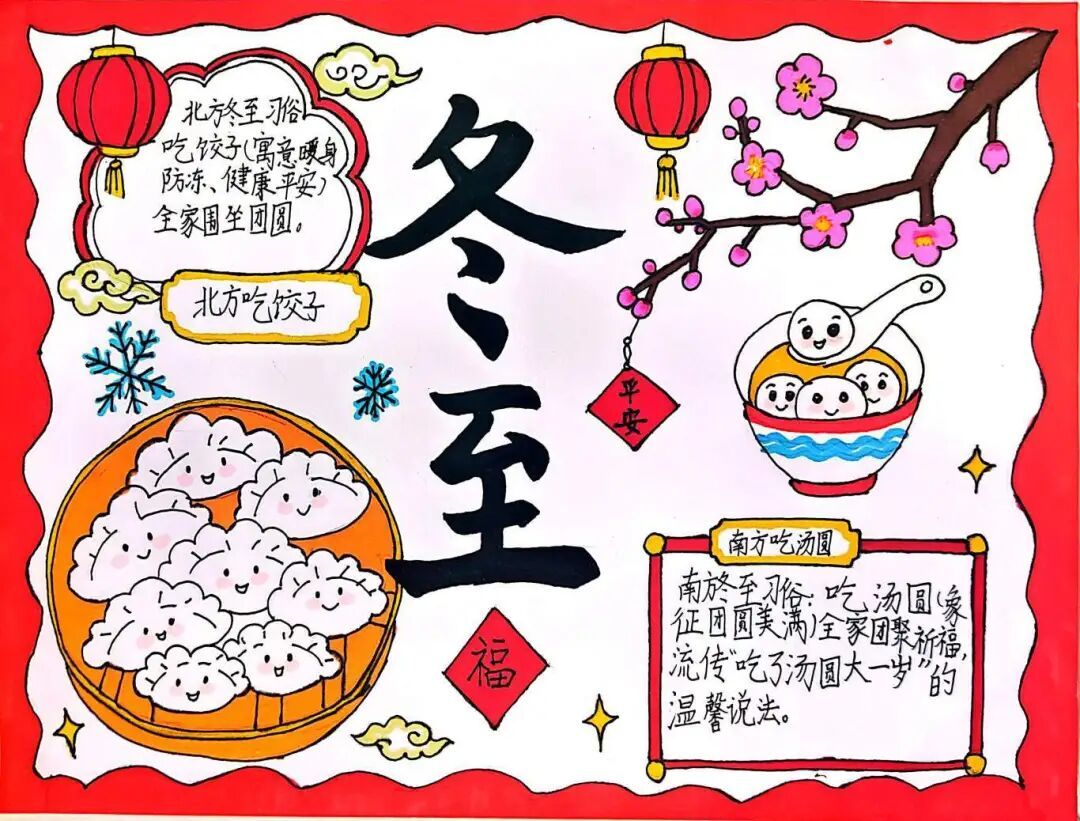 北方冬至习俗
吃饺子(寓意暖身
防冻、健康平安)
全家围坐团圆。
北方吃饺子
冬至
平安
福
南方吃汤圆
南方冬至习俗:吃汤圆(象
征团圆美满)全家团聚祈福,
流传"吃了汤圆大一岁"的
温馨说法。